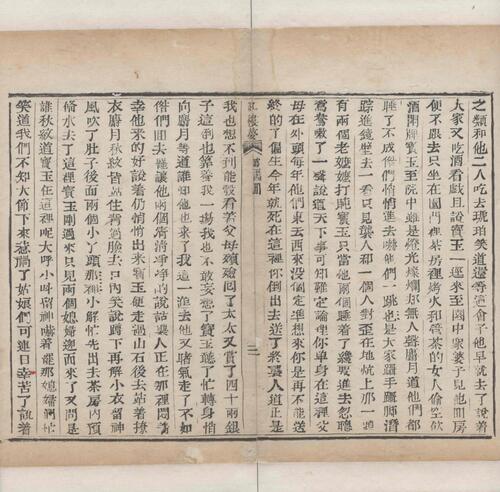 之類和他二人吃去琥珀笑道還等這會子他早就去了說着
大家又吃酒看戲且說寳玉一逕來至園中衆婆子見他囘房
便不跟去只坐在園門裡茶房裡烤火和管茶的女人偷空飲
酒鬪牌寳玉至院中雖是燈光燦爛却無人聲麝月道他們都
睡了不成偺們悄悄進去嚇他們一跳也是大家躡手躡脚潛
踪進鏡壁去一看只見襲人和一個人對歪在地炕上那一頭
有兩個老嬤嬤打盹寳玉只當他兩個睡着了纔要進去忽聽
鴛鴦嗽了一聲說道天下事可知難定論理你單身在這裡父
母在外頭每年他們東去西來沒個定準想來你是再不能送
終的了偏生今年就死在這裡你倒出去送了終襲人道正是
紅樓夢 第 回 二
我也想不到能彀看着父母殯殮囘了太太又賞了四十兩銀
子這倒也算養我一場我也不敢妄想了寳玉聽了忙轉身悄
向麝月等道誰知他也來了我這一進去他又賭氣走了不如
偺們囘去罷讓他兩個清清淨淨的說話襲人正在那裡悶着
幸他來的好說着仍悄悄出來寳玉便走過山石後去站着撩
衣麝月秋紋皆站住背過臉去口內笑說蹲下再解小衣留神
風吹了肚子後面兩個小丫頭知是小解忙先出去茶房內預
俻水去了這裡寳玉剛過來只見兩個媳婦迎面來了又問是
誰秋紋道寳玉在這裡呢大呼小叫留神嚇着罷那媳婦們忙
笑道我們不知大節下來惹禍了姑娘們可連日辛苦了說着